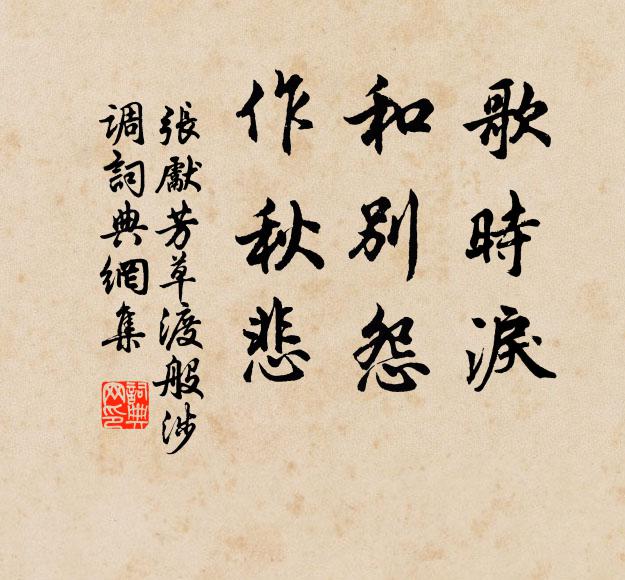 歌時淚
和別怨
作秋悲
張獻芳草渡般涉
调詞典網集
詞典网印